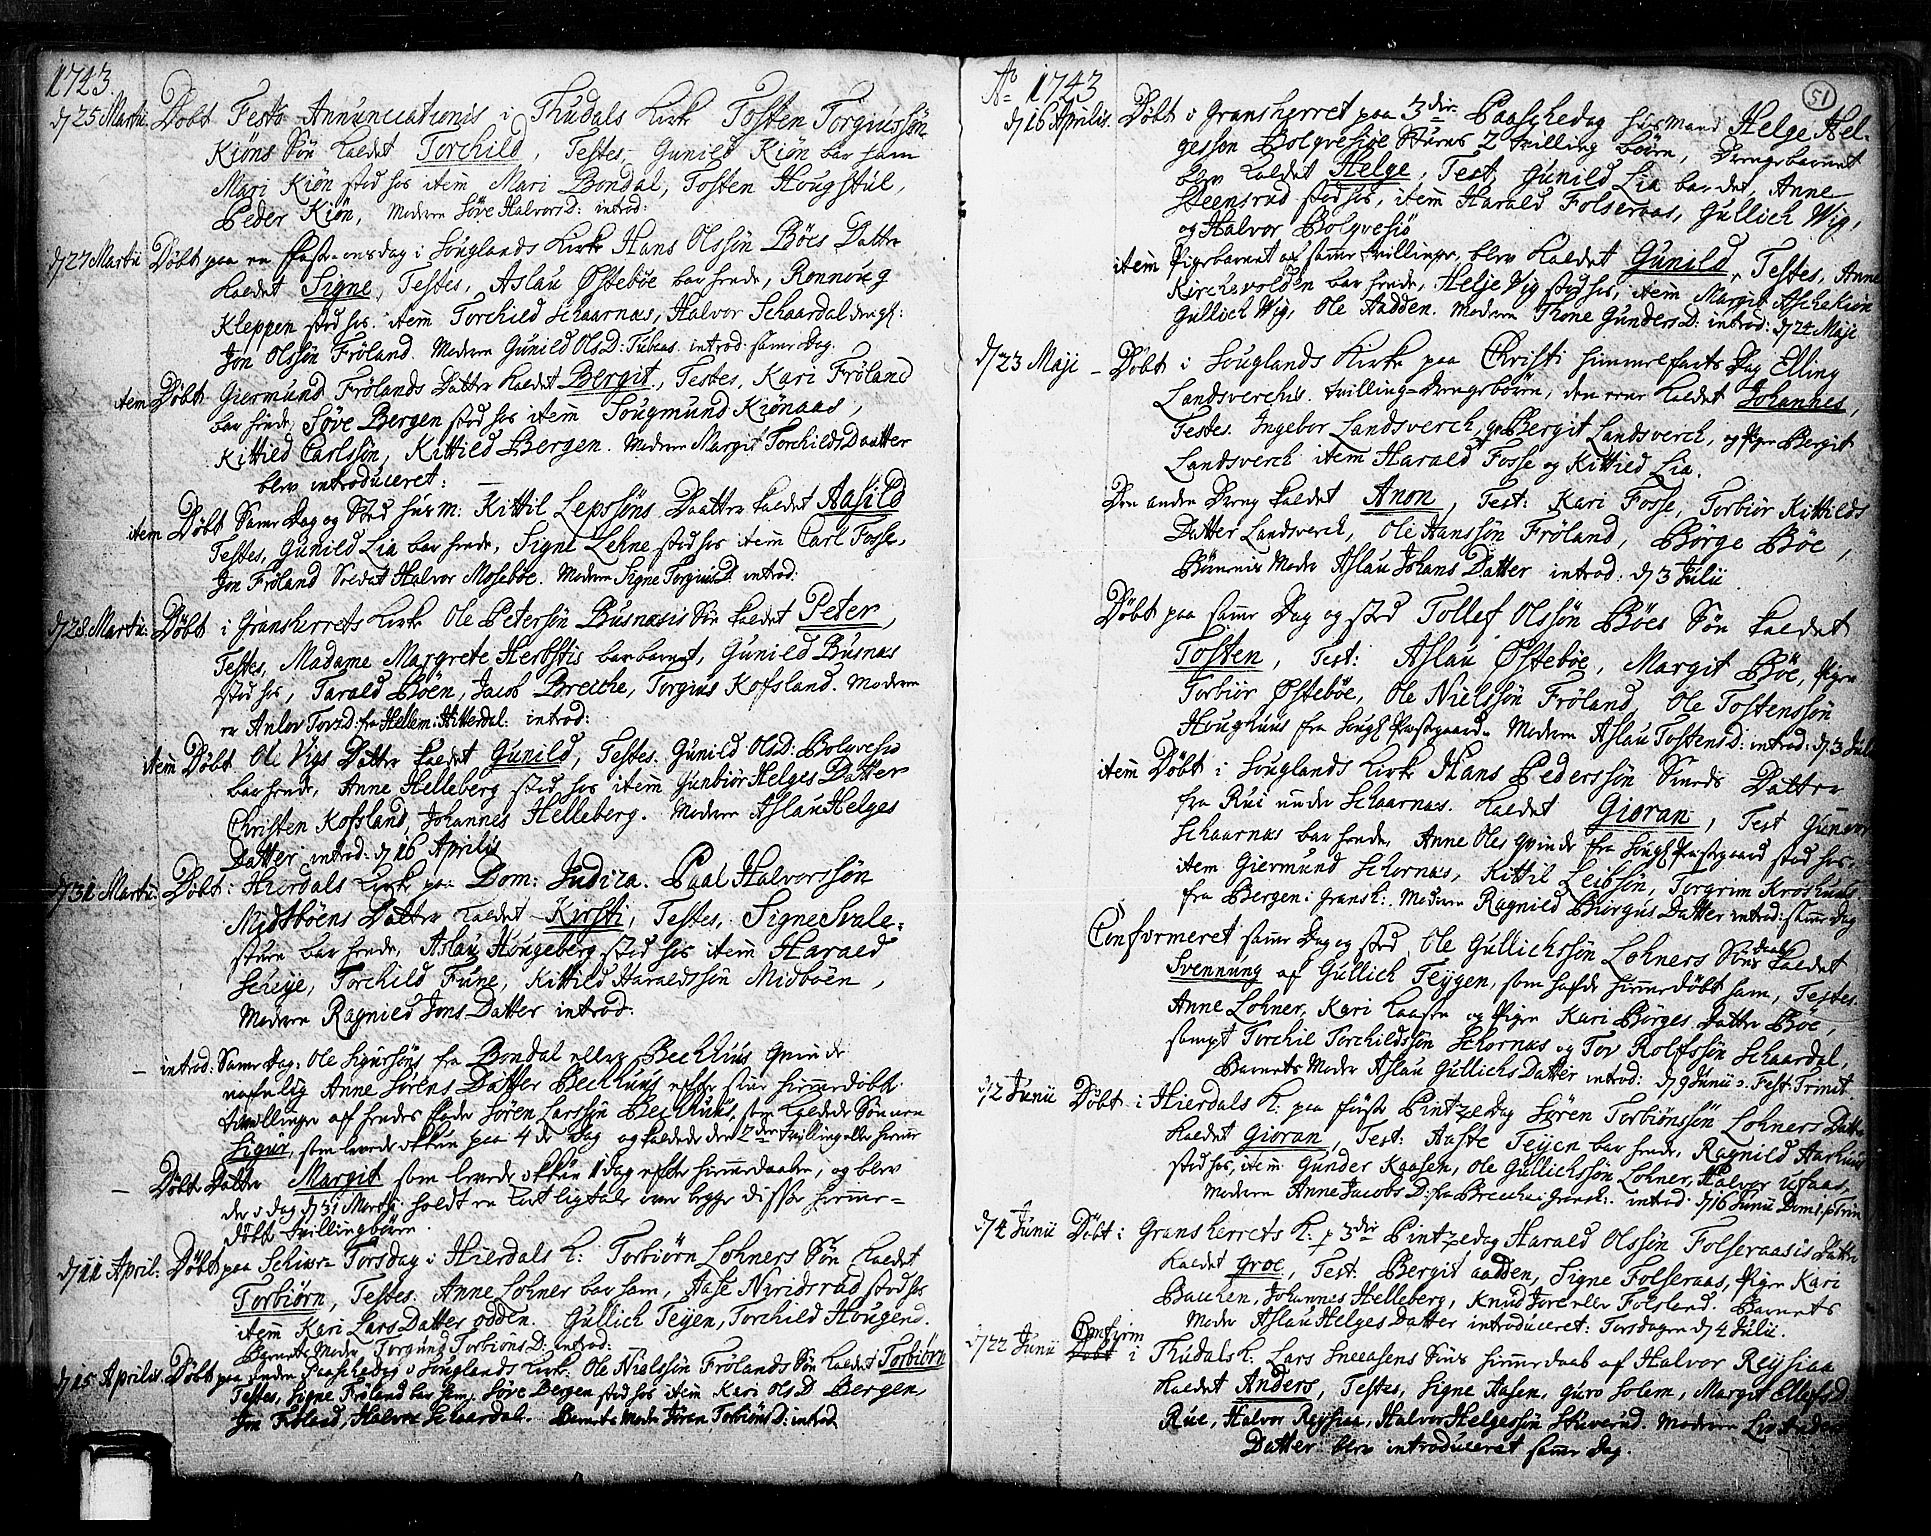 1743.
d/ 25 Martii Døbt Festo Annunciationis i Thudals Kirke Tosten Torgiussøn
Kiøns Søn kaldet Torchild, Testes, Gunild Kiøn bar ham
Mari Kiøn stod hos item Mari Bondal, Tosten Hougstul,
Peder Kiøn, Modern Søve HalvorsD: introd:
d/ 27 Martii Døbt paa en faste-onsdag i Souglands Kirke Hans Olssøn Böes Datter
kaldet Signe, Testes, Aslau Østebøe bar hende, Rønnoug
Kleppen stod hos. item Torchild Schaarnæs, Halvor Schaardal
Jon Olssøn Frøland. Modern Gunild OlsD: introd: samme Dag.
item Døbt Giermund Frølands Datter kaldet Bergit, Testes, Kari Frøland
bar hende, Søve Bergen stod hos item Sougmund Kiønaas,
Kittild Carlssøn, Kittild Bergen. Modern Margit Torchilds Daatter
blev introduceret:
item Døbt Samme Dag og Sted Husm: Kittil Lepssøns Daatter kaldet Aasild
Testes, Gunild Lia bar hende, Signe Lehne stod hos item Carl Fosse,
Jon Frøland Soldat Halvor Mosebøe. Modern Signe TorgiusD. introd:
d/ 28. Martii: Døbt i Gransherrets Kirke Ole Petersøn Busnæsis Søn kaldet Peter,
Testes, Madame Margrete Herbstis bar barnet, Gunild Busnæs
stod hos, Tarald Böen, Jacob Breiche, Torgius Kofsland. Modern
er Anlov TovsD: fra Hellem: Hitterdal: introd:
item Døbt Ole Vigs Datter kaldet Gunild, Testes. Gunild OlsD: Bolgvesiø
bar hende, Anne Helleberg stod hos item Gunbiør Helges Datter
Christen Kofsland, Johannes Helleberg. Modern Aslau Helges
Datter introd: d/ 16 Aprilis
d/ 31 Martii: Døbt i Hierdals Kirke paa Dom: Judica. Paal Halvorssøn
Midtbøens Datter kaldet Kirsti, Testes, Signe Sule-
sture bar hende, Aslau Hougeberg stod hos item Harald
Scheye, Torchild Fune, Kittild Haraldssøn Midbøen,
Modern Ragnild Jons Datter introd:
introd: Samme Dag: Ole Sigurssøns fra Bondal eller Bechhuus Qvinde
nafnlig Anne Sørens Datter Bechhuus efter hjemmedøbt
tvillinger af hendes fader Søren Larssøn Bechhuus, som kaldede Sønnen
Sigur, som levede ikkun paa 4de Dag og kaldede den 2den tvilling eller hjemme
Døbt Datter Margit som levede ikkun 1 dag efter hjemmedaaben, og blev
der i dag d/ 31 Martii holdt en Liigtale over begge disse hjemme-
døbte tvillingbörn.
d/ 11 April: Døbt paa Schiere Torsdag i Hierdals K: Torbiørn Lohners Søn kaldet
Torbiørn, Testes. Anne Lohner bar ham, Aase Nirisrud stod hos
item Kari Lars Datter odden. Gullich Teyen, Torchild Hougen.
Barnets Moder Torgund TorbiønsD: introd:
d/ 15 Aprilis Døbt paa anden Paaschedag i Souglands Kirke. Ole Nielssøn Frølands Søn kaldet Torbiørn
Testes, Signe Frøland bar ham, Søve Bergen stod hos item Kari OlsD Bergen,
Jon Frøland, Halvor Schaardal. Barnets Moder Jøran TorbiønsD: introd.
Ao 1743
51
d/ 16 Aprilis. Døbt i Gransherret paa 3die Paaschedag Husmand Helge Hel-
gesson Bolgvesiøe Sturus 2 tvilling børn, Drengebarnet
blev kaldet Helge, Test, Gunild Lia bar det, Anne
Steensrud stod hos, item Harald Folseraas, Gullich Wig,
og Halvor Bolgvesiø
item Pigebarnet af samme tvillinger, blev kaldet Gunild, Testes, Anne
Kirchevolden bar hende, Helje Vig stod hos, item Margit Aschekiøn
Gullich Wig, Ole Aadden. Modern Thone GundersD: introd: d/ 24 Maji
d/ 23 Maji - Døbt i Souglands Kirke paa Christi Himmelfarts Dag Elling
Landsverchs tvilling-Drengebørn, den eene kaldet Johannes,
Testes. Ingebor Landsverch, Bergit Landsverch, og Pigen Bergit
Landsverch item Harald Fosse og Kittild Lia.
Den anden Dreng kaldet Anon, Test: Kari Fosse, Torbiør Kittilds
Datter Landsverch, Ole Hanssøn Frøland, Børge Bøe,
Børnenes Moder Aslau Johans Datter introd: d/ 3 Julii
Døbt paa samme Dag og sted Tollef Olssøn Böes Søn kaldet
Tosten, Test: Aslau Østebøe, Margit Bøe, Pigen
Torbiør Østebøe, Ole Nielssøn Frøland, Ole Tostenssøn
Houghuus fra Sougl Præstegaard. Modern Aslau TostensD: introd: d/ 3 Julii
item Døbt i Souglands Kirke Hans Pederssøn Smeds Datter
fra Rui under Schaarnæs. kaldet Gioran, Test Gunvor
Schaarnæs bar hende, Anne Oles Qvinde fra Sougl Præstegaard stod hos,
item Giermund Schornæs, Kittil Leibsøn, Torgrim Kroshuus
fra Bergen i Gransh: Modern Ragnild Biørgus Datter introd: samme Dag
Confirmeret samme Dag og sted Ole Gullichssøn Lohners Søns daab kaldet
Svennung af Gullich Teygen, som hafde hjemmedøbt ham, Testes.
Anne Lohner, Kari Kaasen og Pigen Kari Børges Datter Bøe,
sampt Torchil Torchildssøn Schornæs og Tov Rolfssøn Schaardal,
Barnets Moder Aslau Gullichs Datter introd: d/ 9 Junii Fest: Trinit.
d/ 2 Junii Døbt i Hierdals K: paa første Pintzedag Søren Torbiønssøn Lohners Datter
kaldet Gioran, Test: Aaste Teyen bar hende, Ragnild Aarhuus
stod hos, item Gunder Kaasen, Ole Gullichssøn Lohner, Halvor ufaas.
Modern Anne JacobsD: fra Breiche i Gransh: introd. d/ 16 Junii Dom: 1 p Trin
d/ 4 Junii Døbt i Gransherrets K: p 3die Pintzedag Harald Olssøn Folseraasis Datter
kaldet Groe, Test: Bergit aadden, Signe Folseraas, Pigen Kari
Bacchen, Johannes Helleberg, Knud Jore eller Folsland. Barnets
Moder Aslau Helges Datter introduceret: Torsdagen d/ 4 Julii.
d/ 22 Junii Confirm i Thudals K: Lars Sneeasens Søns hjemmedaab af Halvor Reysiaa
kaldet Anders, Testes, Signe Aasen, Guro Solem, Margit EllefsD
Rue, Halvor Reysiaa, Halvor Helgessøn Skuverud. Modern Liv Anders
Datter blev introduceret samme Dag.